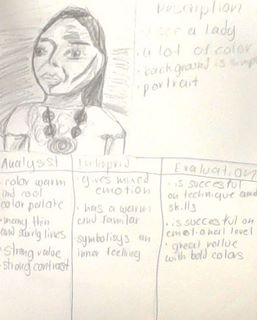 Description
I see a lady
a lot of color
background is simple
portrait
Analysis
color warm
and cool
color palate
many thin
and curly lines
strong value
strong contrast
Interprit
gives mixed
emotion
has a warm
and familar
symbolisys an
inner feeling
Evaluation
is succesful
on technique and
skills
is succesful on
emotional level
great vallue
with bold colors